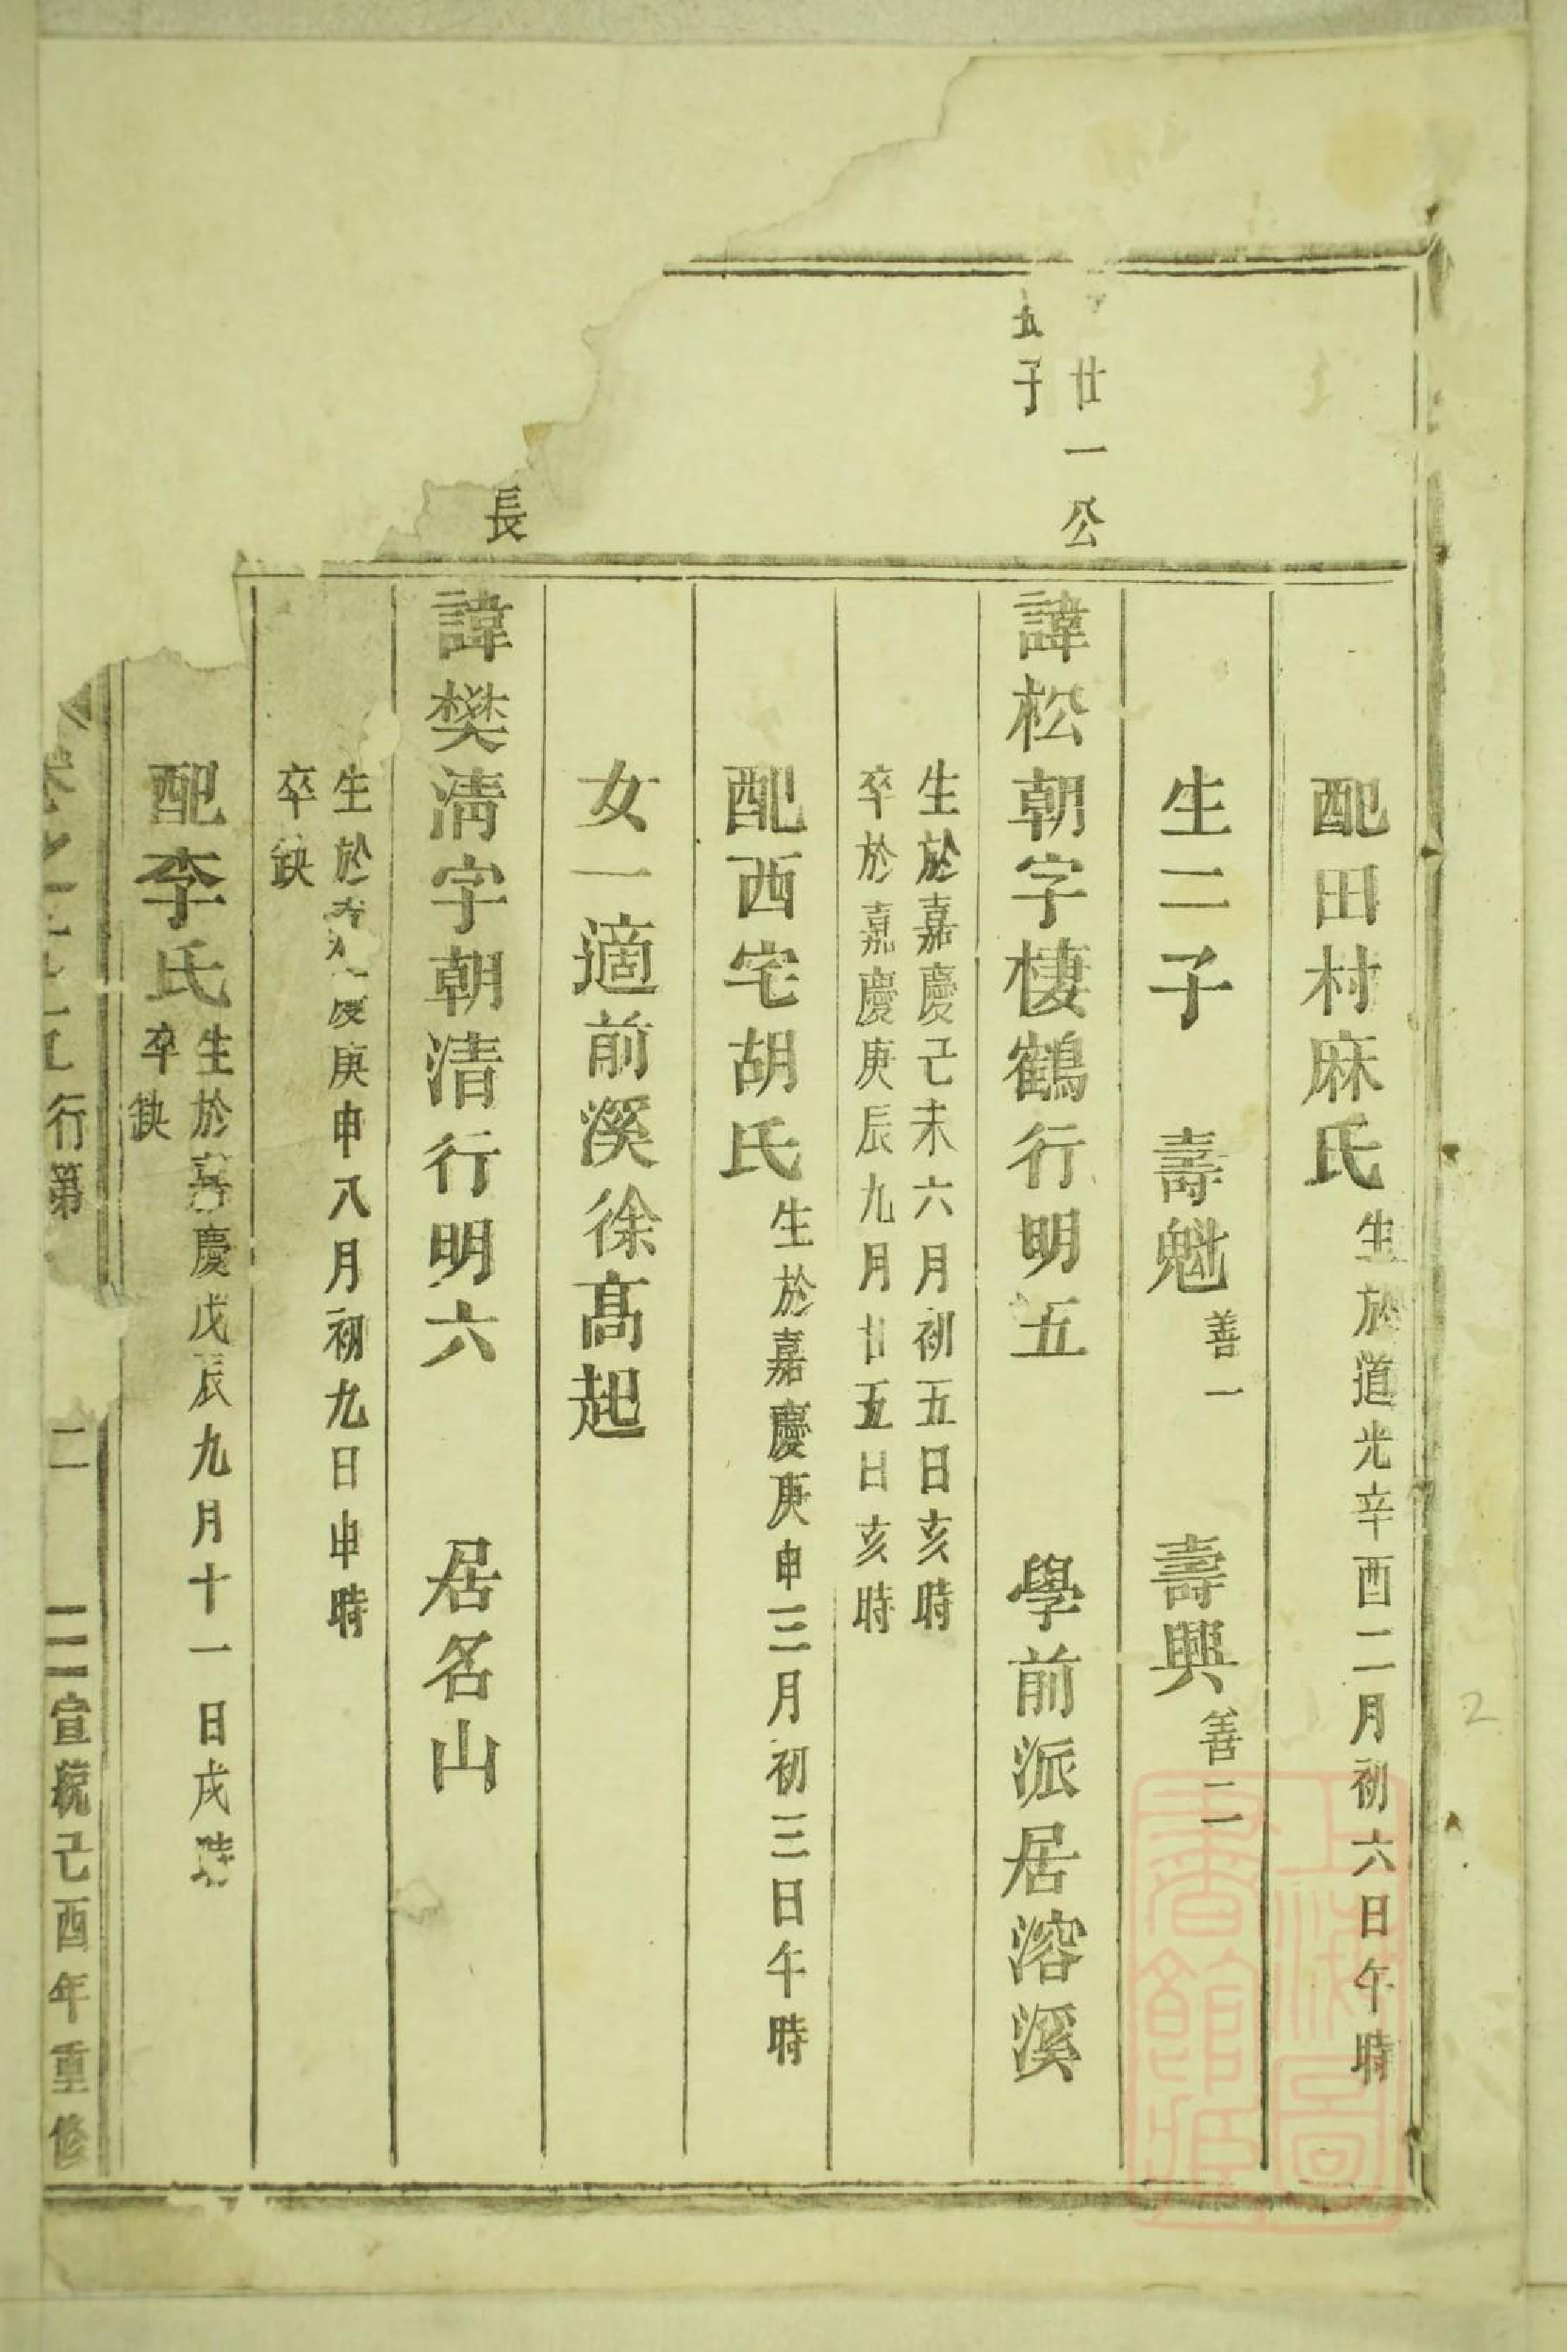 配田村麻氏生於道光辛酉二月初六日午時
生二子 壽魁善一 壽興善二
廿一公
五子
諱松朝字棲鶴行明五 學前派居溶溪
生於嘉慶己未六月初五日亥時
卒於嘉慶庚辰九月廿五日亥時
配西宅胡氏生於嘉慶庚申三月初三日午時
女一適前溪徐高起
長
諱樊清字朝清行明六 居名山
生於慶庚申八月初九日申時
卒缺
配李氏生於嘉慶戊辰九月十一日戌時
卒缺
卷之 行第 二 宣統己酉年重修
上海圖
書館藏
2